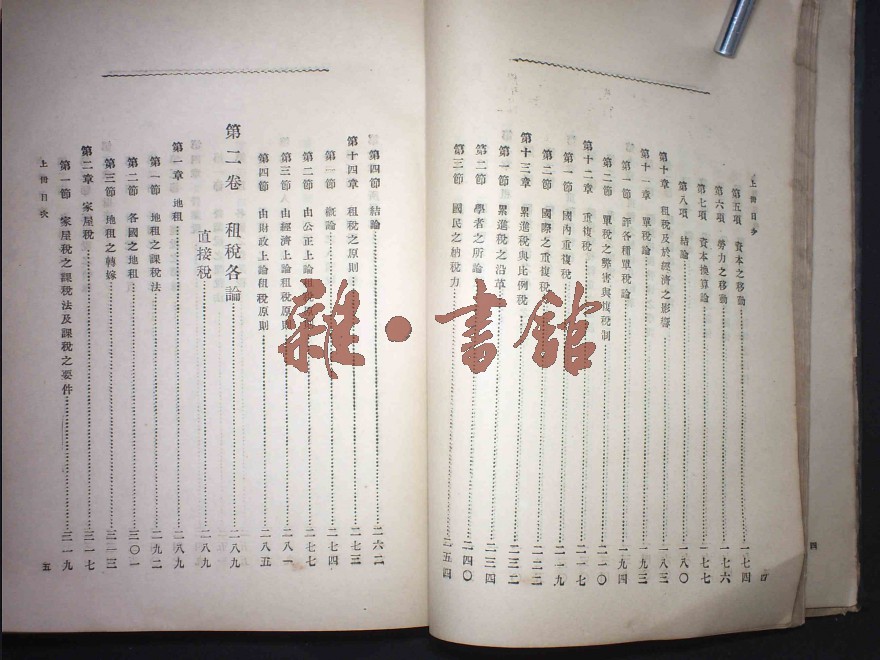 上冊目次
第五項 資本之移動……一七四
第六項 勞力之移動……一七六
第七項 資本換算論……一七七
第八項 結論……一八〇
第十章 租稅及於經濟之影響……一八三
第十一章 單稅論……一九三
第一節 評各種單稅論……一九四
第二節 單稅之弊害與複稅制……二一〇
第十二章 重複稅……二一七
第一節 國內重複稅……二一九
第二節 國際之重複稅……二二二
第十三章 累進稅與比例稅……二三二
第一節 累進稅之沿革……二三四
第二節 學者之所論……二四〇
第三節 國民之納稅力……二五四
四
第四節 結論……二六二
第十四章 租稅之原則……二七三
第一節 概論……二七四
第二節 由公正上論租稅原則……二七七
第三節 由經濟上論租稅原則……二八一
第四節 由財政上論租稅原則……二八五
第二卷 租稅各論……二八九
直接稅……二八九
第一章 地租……二八九
第一節 地租之課稅法……二九二
第二節 各國之地租……三〇一
第三節 地租之轉嫁……三一三
第二章 家屋稅……三一七
第一節 家屋稅之課稅法及課稅之要件……三一九
上冊目次
五
雜·書館
四